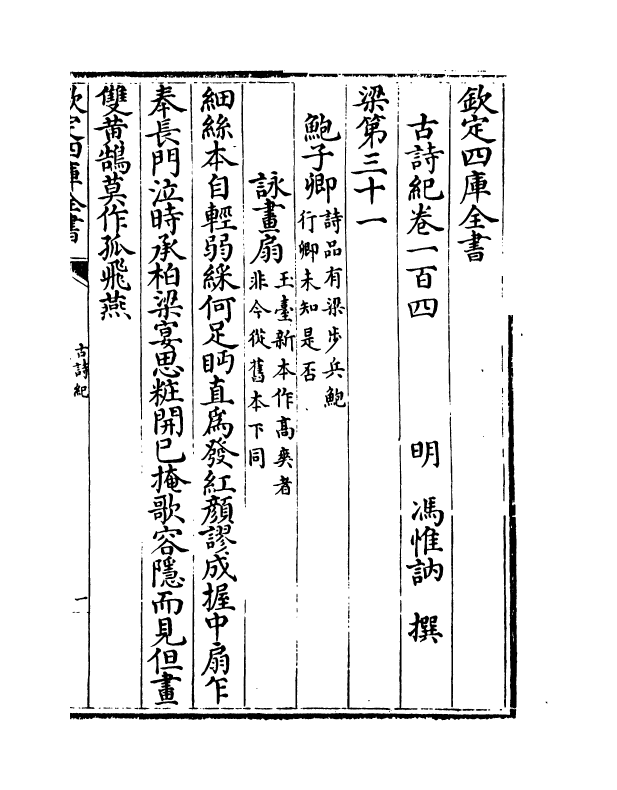 欽定四庫全書
古詩紀卷一百四 明 馮惟訥 撰
梁第三十一
鮑子卿 詩品有梁步兵鮑
行卿未知是否
詠畫扇 玉臺新本作髙爽者
非今從舊本下同
細絲本自輕弱綵何足眄直爲發紅顔謬成握中扇乍
奉長門泣時承柏梁宴思粧開已掩歌容隱而見但畫
雙黄鵠莫作孤飛燕
欽定四庫全書
古詩紀
一